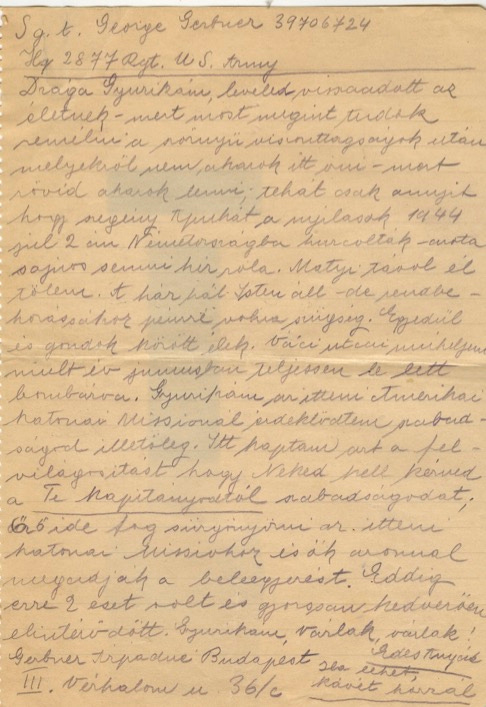 Sg. t. George Gerbner 39706724
Hq 2877 Rgt. U S. Army
Drága Gyurikám, leveled visszaadott az
életnek – mert most megint tudok
remélni a szörnyű viszontagságok után
melyekről nem akarok itt írni – mert
rövid akarok lenni; tehát csak annyit
hogy szegény Apukát a nyilasok 1944
júl 2 án Németországba hurcolták – azóta
sajnos semmi hír róla. Matyi távol él
tőlem. A ház hál Isten áll – de rendbe-
hozásához pénzre volna szükség. Egyedül
és gondok között élek. Váci utcai műhelyem
mult év juniusban teljessen le lett
bombázva. Gyurikám az itteni Amerikai
katonai Missionál érdeklődtem szabad-
ságod illetőleg. Itt kaptam azt a fel-
világosítást hogy Neked kell kérned
a Te kapitányodtól szabadságodat,
Ő ide fog sürgönyözni az itteni
katonai Missiohoz és ők azonnal
megadják a beleegyezést. Eddig
erre 2 eset volt és gyorsan kedvezően
elintéződött. Gyurikám, várlak, várlak!
Édes Anyád
Gerbner Árpádné Budapest
III. Vérhalom u 36/c
ha lehet,
kávét hozzál